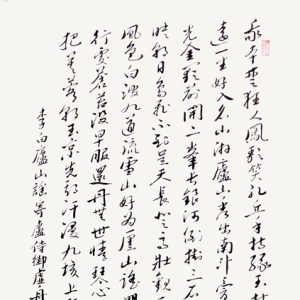 我本楚狂人鳳歌笑孔丘手持綠玉杖
遠一生好入名山游廬山秀出南斗傍
光金闕前開二峰長銀河倒掛三石
映朝日鳥飛不到吳天長登高壯觀
風色白波九道流雪山好為廬山謠
行處蒼苔沒早服還丹無世情琴心
把芙蓉朝玉京先期汗漫九垓上
李白廬山謠寄盧侍御虛舟